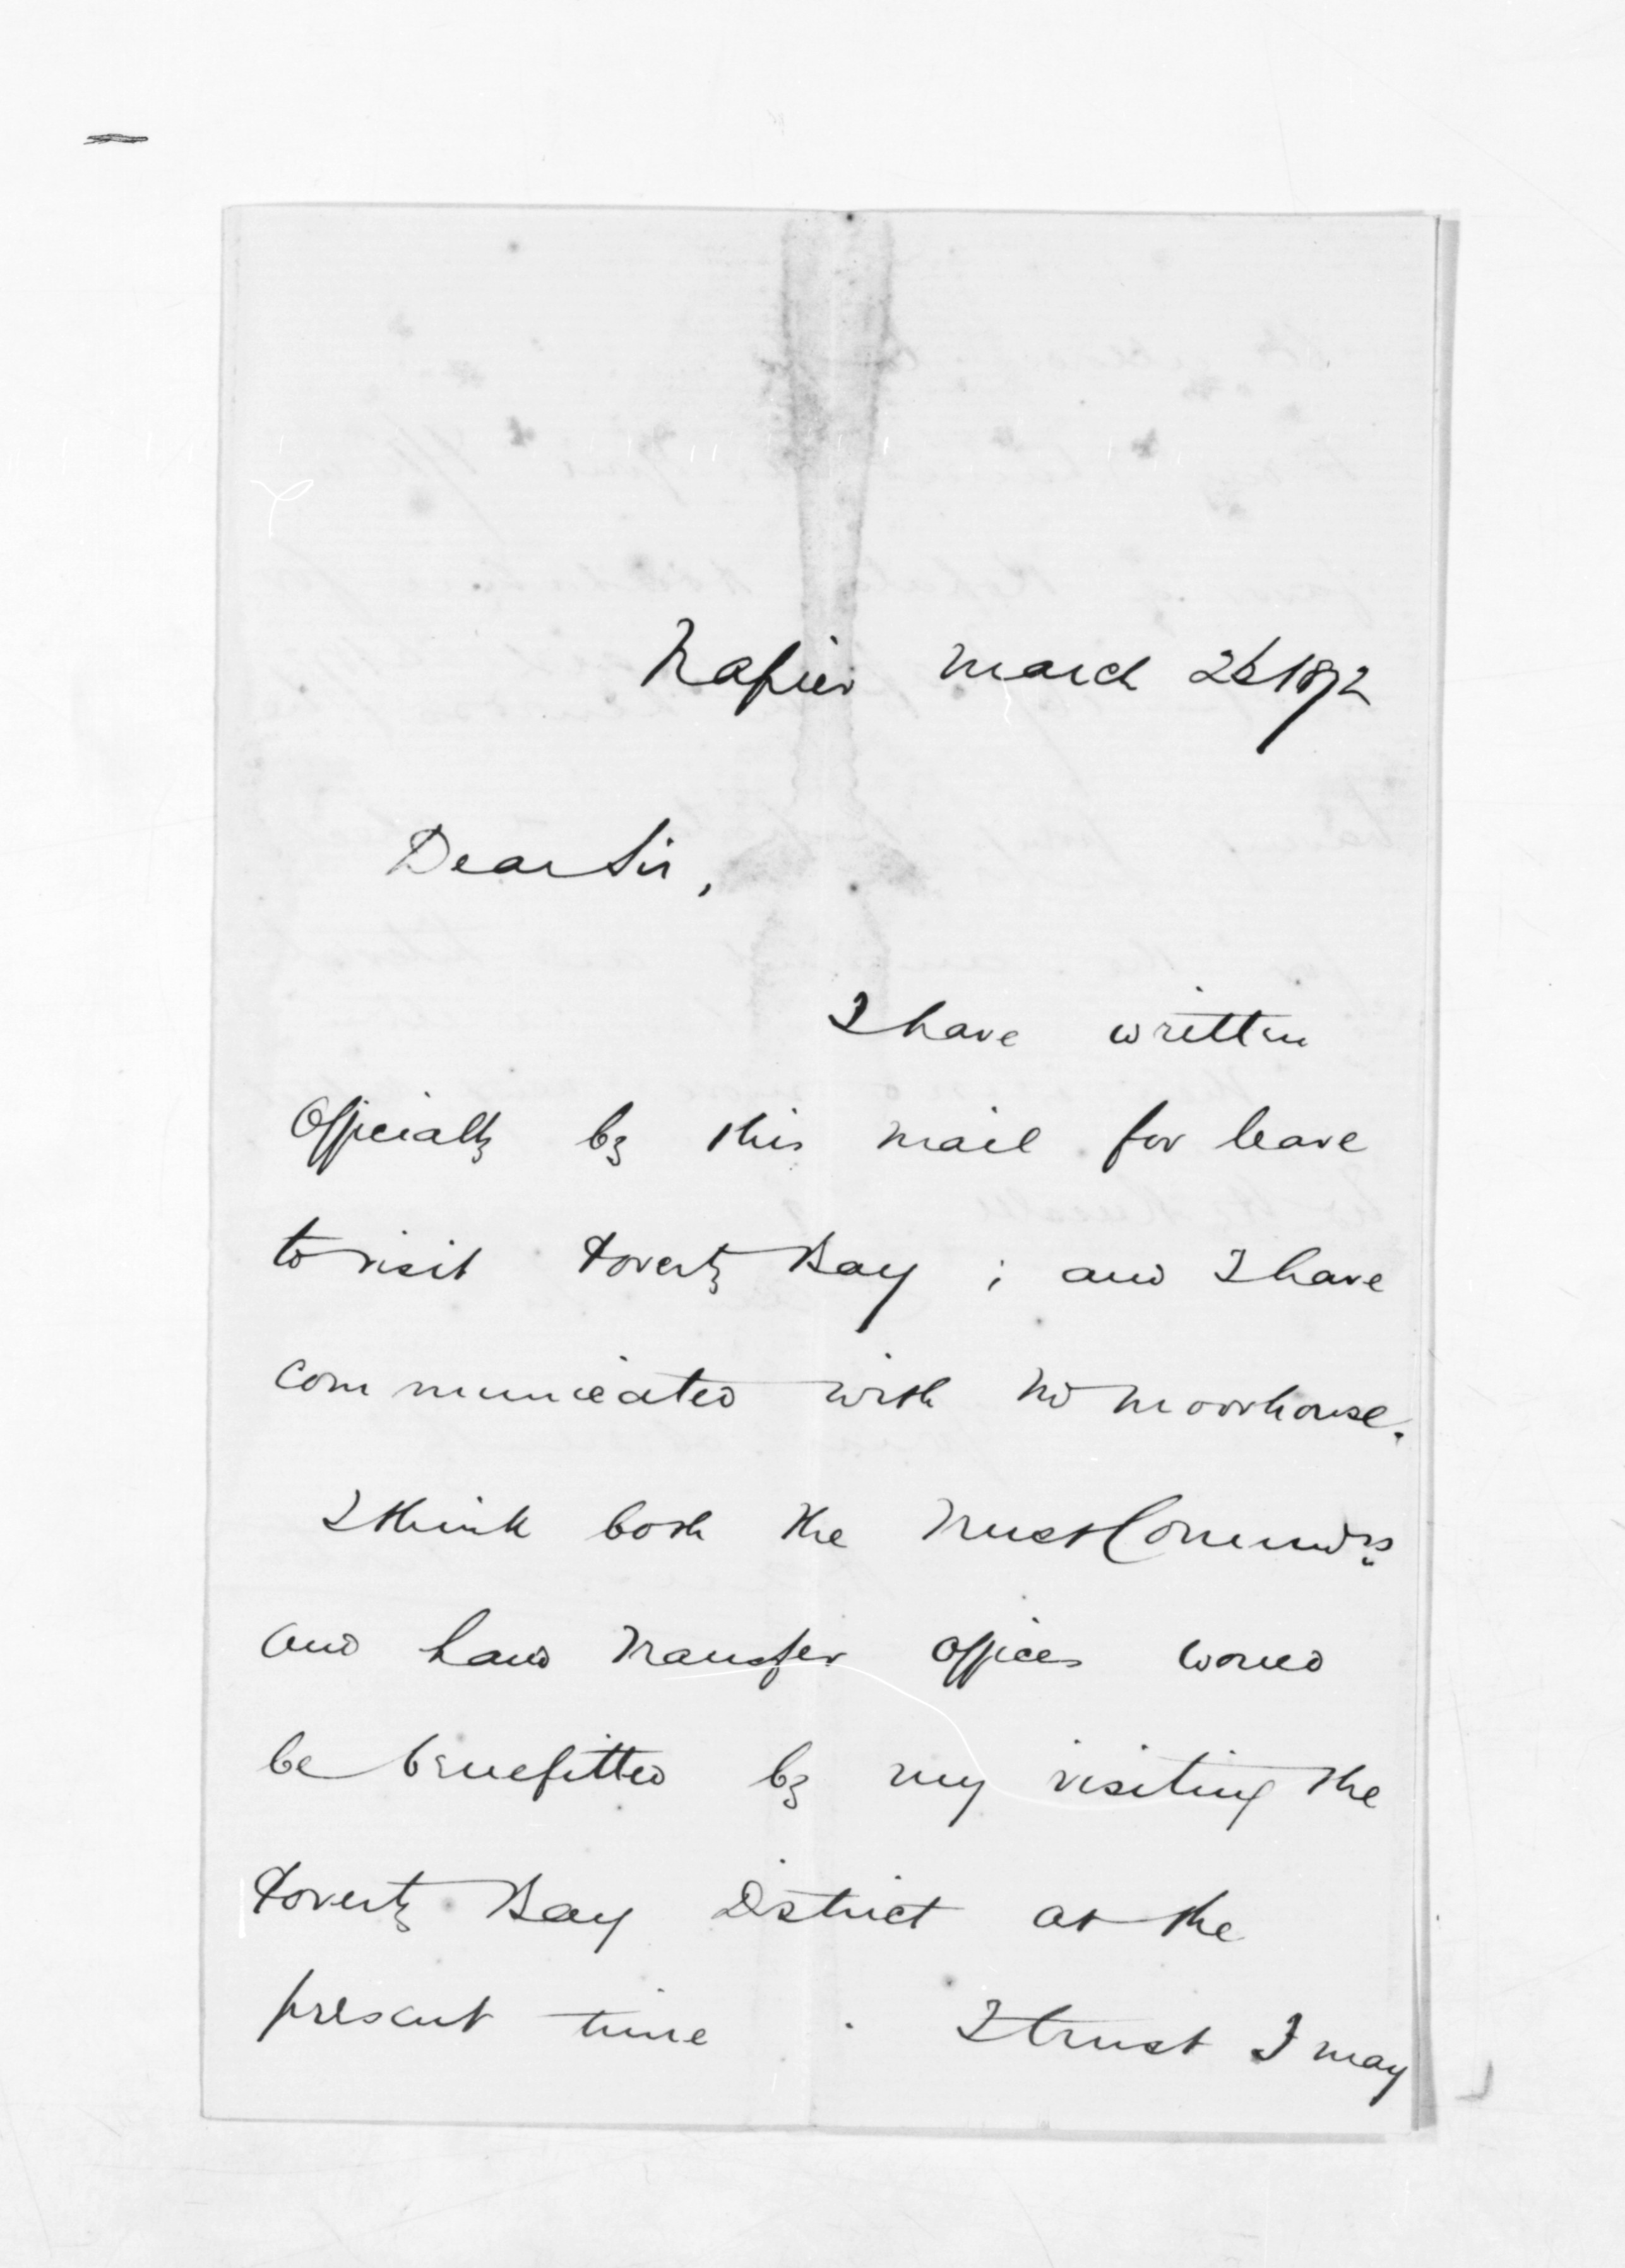 Napier March 26 1872
Dear Sir,
I have written
Officially by this mail for leave
to visit Poverty Bay ; and I have
communicated with Mr Moorhouse.
I think both the Trust Commrs
and Land Transfer Offices would
be benefitted by my visiting the
Poverty Bay District at the
present time . I trust I may